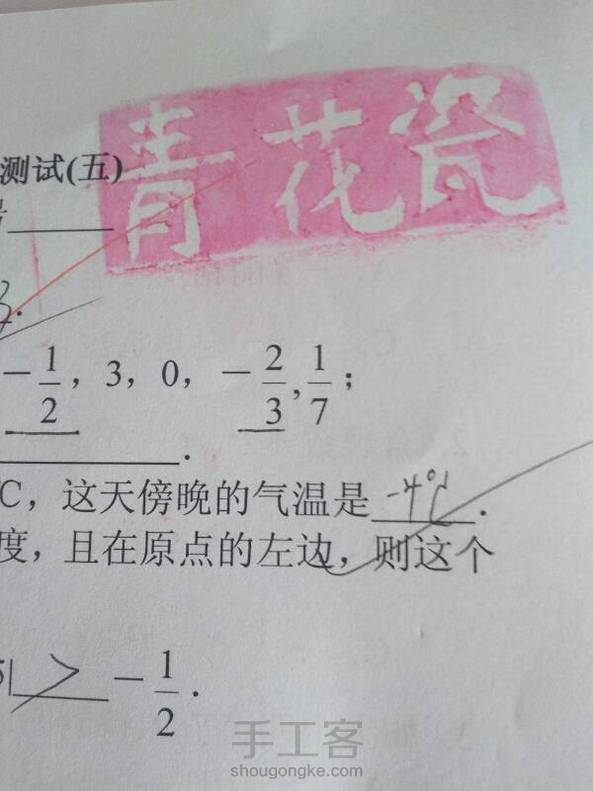 青花瓷
测试(五)
3.
-1/2, 3, 0, -2/3, 1/7;
.
℃，这天傍晚的气温是-4℃.
度，且在原点的左边，则这个
> -1/2.
手工客
shougongke.com